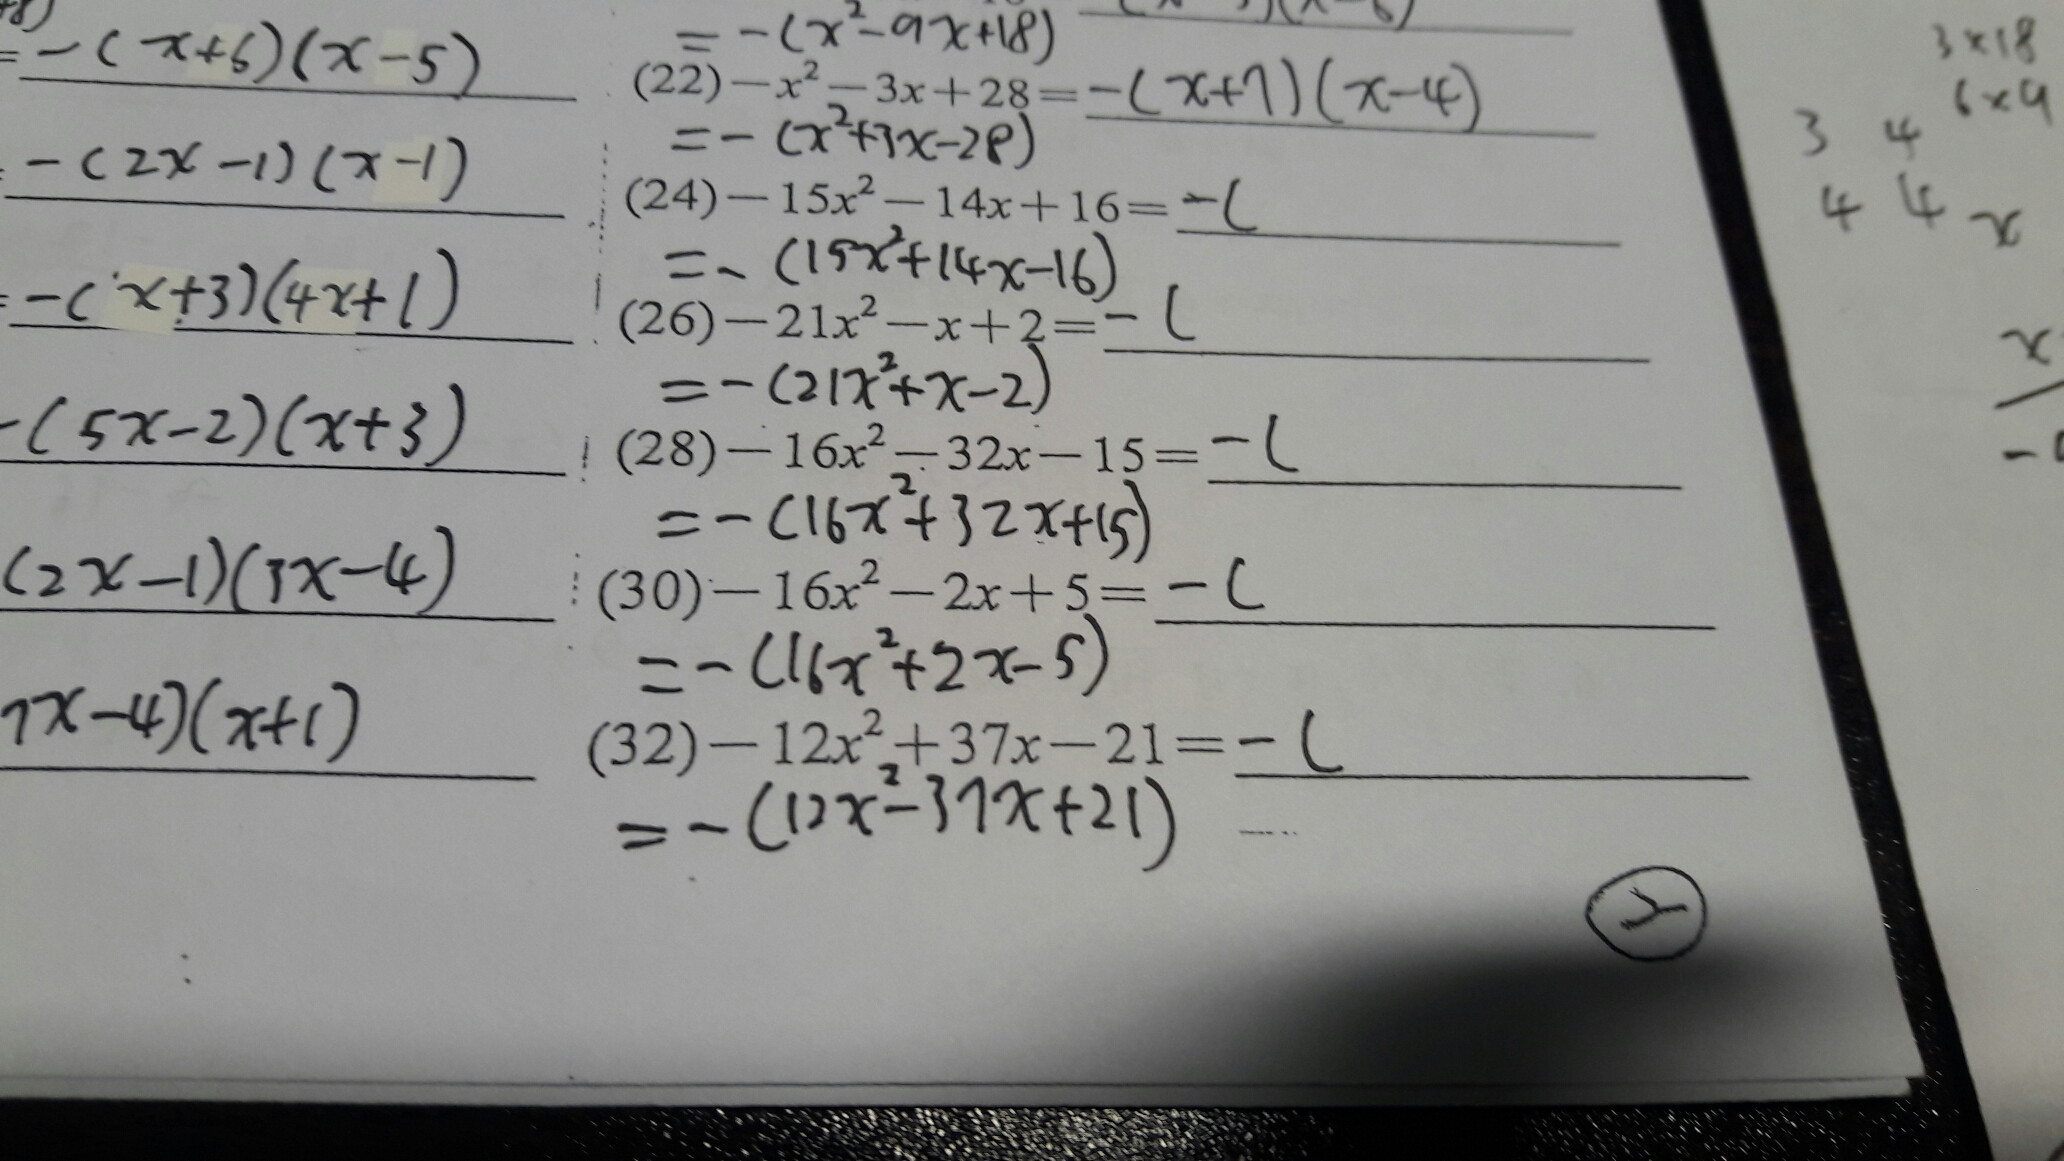 =-(x+6)(x-5)
-(2x-1)(x-1)
=-(x+3)(4x+1)
-(5x-2)(x+3)
(2x-1)(3x-4)
7x-4)(x+1)
=-(x²-9x+18)
(22)-x²-3x+28=-(x+7)(x-4)
=-(x²+3x-28)
(24)-15x²-14x+16=-(
=-(15x²+14x-16)
(26)-21x²-x+2=-(
=-(21x²+x-2)
(28)-16x²-32x-15=-(
=-(16x²+32x+15)
(30)-16x²-2x+5=-(
=-(16x²+2x-5)
(32)-12x²+37x-21=-(
=-(12x²-37x+21)
3×18
6×9
3 4
4 4 x
x